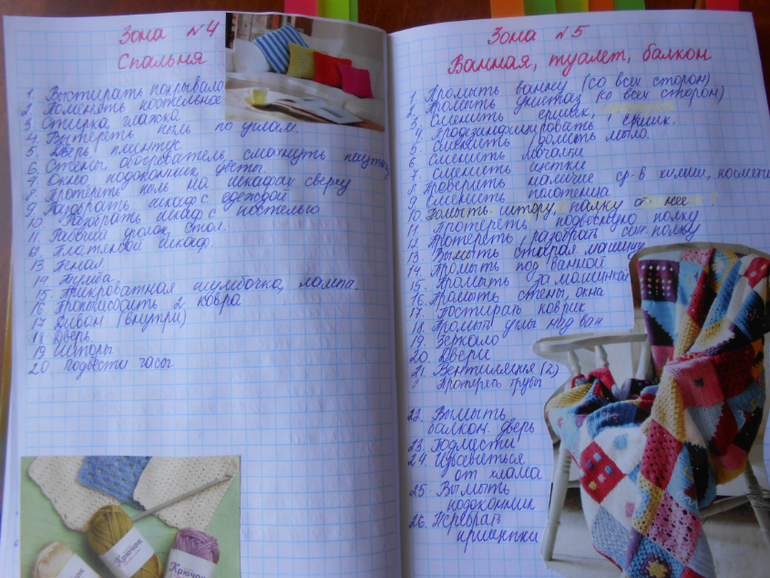 Зона №4
Спальня
1. Вытирать покрывало
2. Поменять постельное
3. Стирка, глажка
4. Вытереть пыль по углам.
5. Дверь плинтус
6. Стены обогреватель смахнуть паутину
7 Окно подоконник, цветы
8 Протереть пыль на шкафах сверху
9 Разобрать шкаф с одеждой
10 Разобрать шкаф с постелью
11 Рабочий уголок, стол.
12 Платяной шкаф.
13
14 Тумба.
15 Прикроватная тумбочка, лампа.
16 Пропылесосить 2 ковра
17 Диван (внутри)
18 Дверь
19 Шторы
20 Подвести часы
Крючок
Крючок
Зона №5
Ванная, туалет, балкон
1. Промыть ванну (со всех сторон)
2 Промыть унитаз (со всех сторон)
3 Сменить ершик,
4 Продезинфицировать ершик.
5 Сменить/домыть мыло.
6 Сменить мочалки
7. Сменить щетки
8 Проверить наличие ср-в химии, космети
9 Сменить полотенца
10 Помыть штору, палку от нее
11 Протереть подвесную полку
12 Протереть, разобрать полку
13 Вымыть старая машину
14 Промыть под ванной
15. Промыть за машинкой
16 Промыть стены, окна
17. Постирать коврик
18 Промыть углы над ван
19. Зеркало
20. Двери
21. Вентиляция (2)
Протирать трубы
22. Вымыть
балкон. дверь
23. Подмести
24. Избавиться
от хлама
25 Вымыть
подоконник
26. Перебрать
прищепки